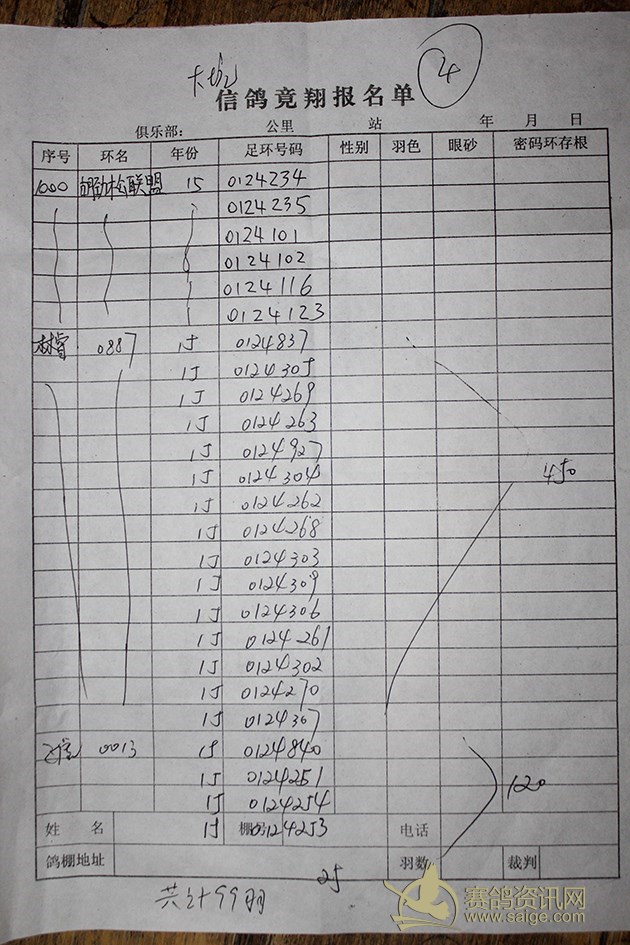 4
信鸽竟翔报名单
俱乐部： 公里 站 年 月 日
序号 环名 年份 足环号码 性别 羽色 眼砂 密码环存根
1000 胡劲松联盟 15 0124234
0124235
0124101
0124102
0124116
0124123
0887 15 0124837
15 0124305
15 0124269
15 0124263
15 0124927
15 0124304
15 0124262
15 0124268
15 0124303
15 0124309
15 0124306
15 0124261
15 0124302
15 0124270
15 0124367
450
0013 15 0124840
15 0124251
15 0124254
120
姓名 15 棚号 0124253 电话
鸽棚地址 羽数 裁判
25
共计99羽
赛鸽资讯网
www.saige.com